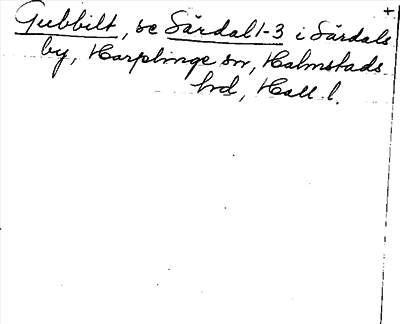 Gubbilt, se Särdal 1-3 i Särdals
by, Harplinge sn, Halmstads
hd, Hall. l.